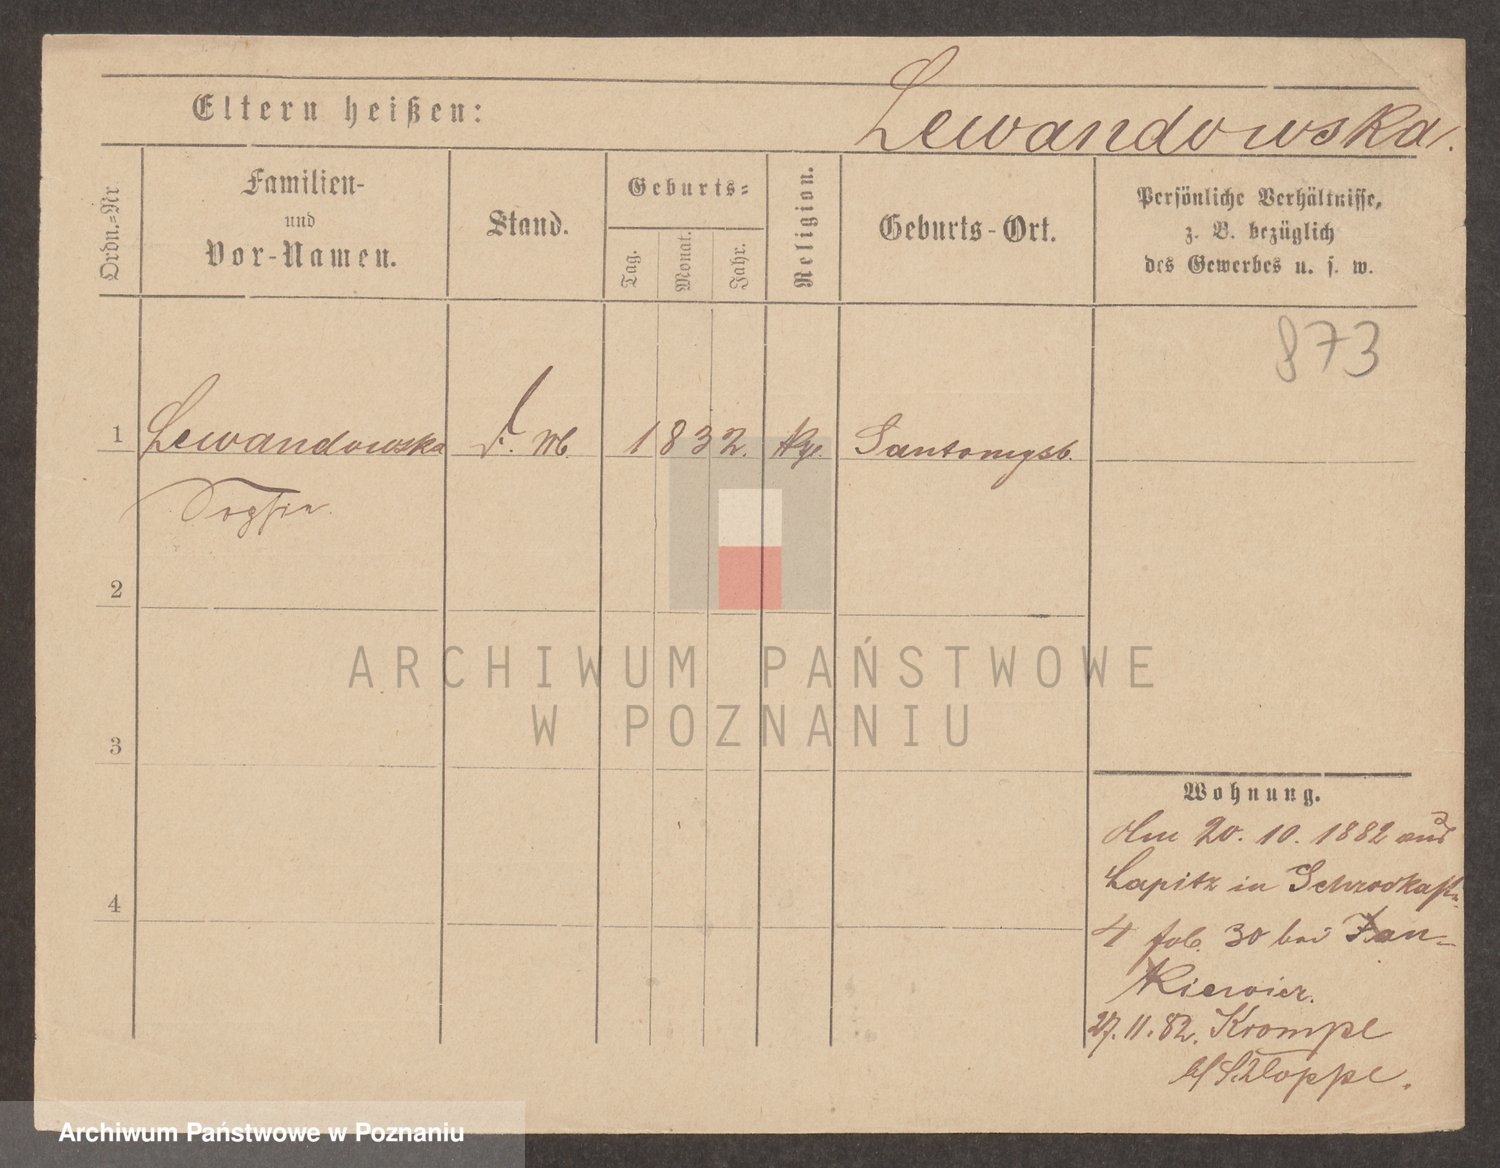 Eltern heißen:
Lewandowska.
Ordn.=Nr
Familien-
und
Vor-Namen.
Stand.
Geburts=
Tag.
Monat.
Jahr.
Religion.
Geburts-Ort.
Persönliche Verhältnisse,
z. B. bezüglich
des Gewerbes u. s. w.
873
1 Lewandowska 1832.
Sophia
2
ARCHIWUM PAŃSTWOWE
W POZNANIU
3
4
Wohnung.
Am 20. 10. 1882 aus
Lapitz in Schrodkastr.
4 30 bei Jan-
kiewicz.
27. 11. 82. Krompe
b/Schloppe.
Archiwum Państwowe w Poznaniu